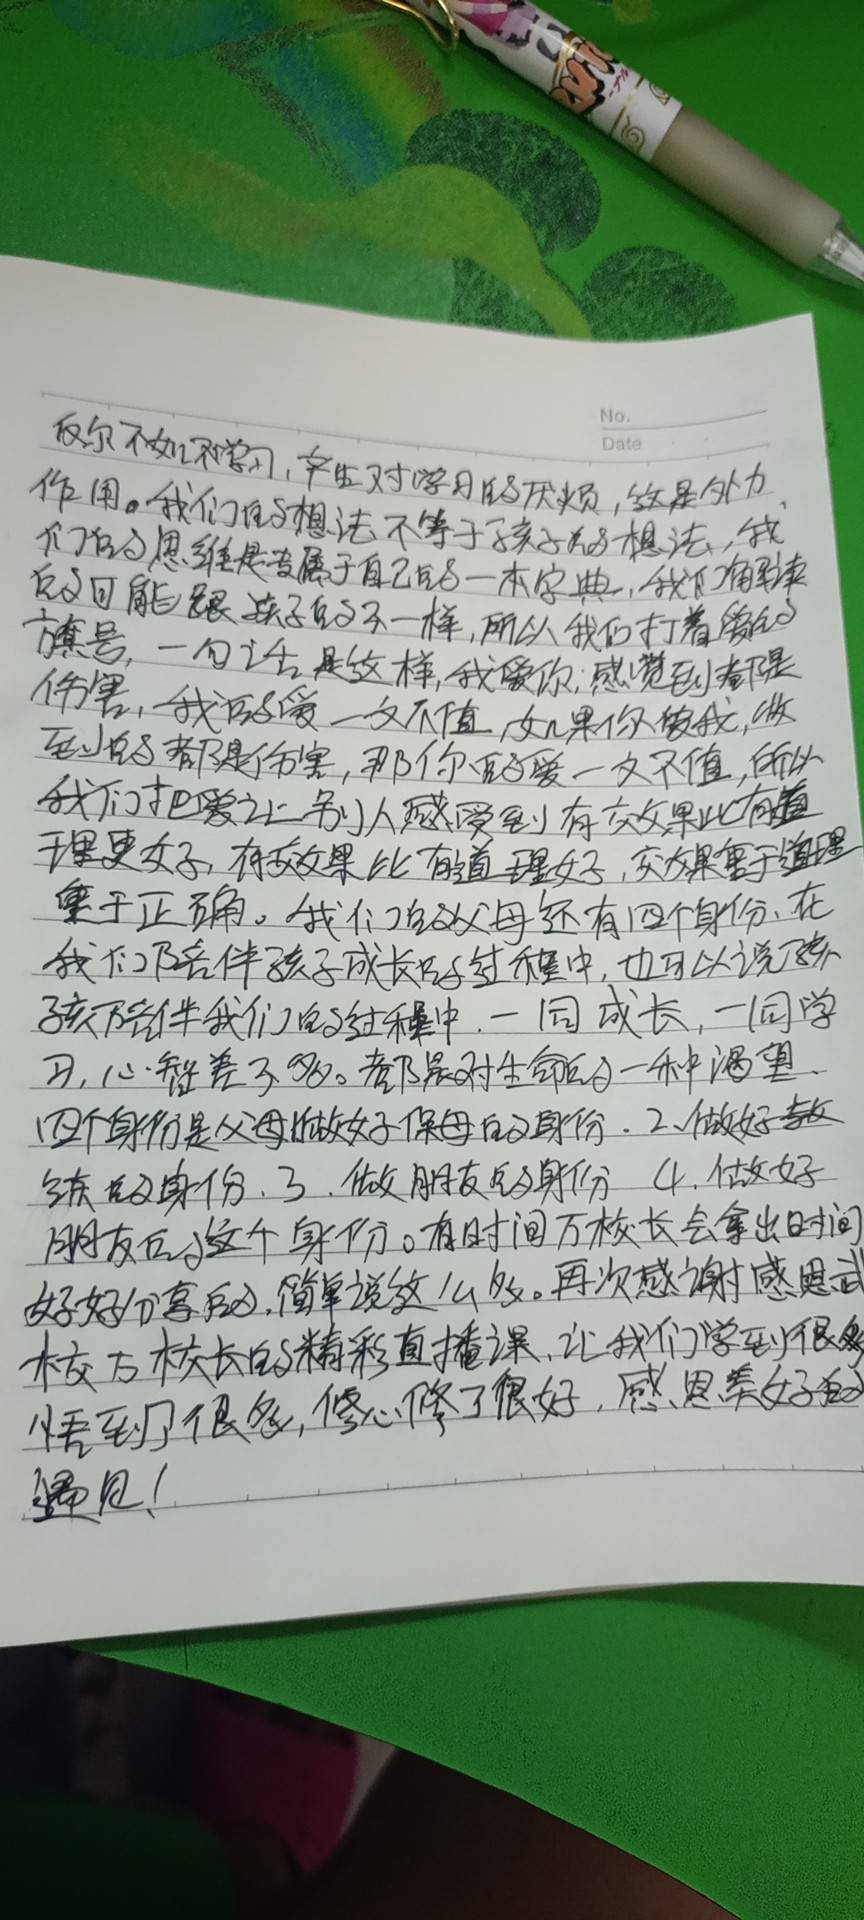 No.
Date
反尔不如不学习，产生对学习的厌烦，这是外力
作用。我们的想法不等于孩子的想法，我
们的思维是专属于自己的一本字典，我们解读
的可能跟孩子的不一样，所以我们打着爱的
旗号，一句话是这样，我爱你，感觉到都是
伤害，我的爱一文不值，如果你爱我，做
到的都是伤害，那你的爱一文不值，所以
我们把爱让别人感受到有效果比有道
理更好，有效果比有道理好，效果重于道理
重于正确。我们的父母还有四个身份、在
我们陪伴孩子成长的过程中，也可以说孩
孩陪伴我们的过程中.一同成长，一同学
习，心智差不多。都是对生命的一种渴望.
四个身份是父母做好保母的身份.2、做好教
练的身份.3.做朋友的身份 4.做好
朋友的这个身份。有时间万校长会拿出时间
好好分享的，简单说这么多。再次感谢感恩武
校万校长的精彩直播课，让我们学到很多
悟到了很多，修心修了很好，感恩美好的
遇见！